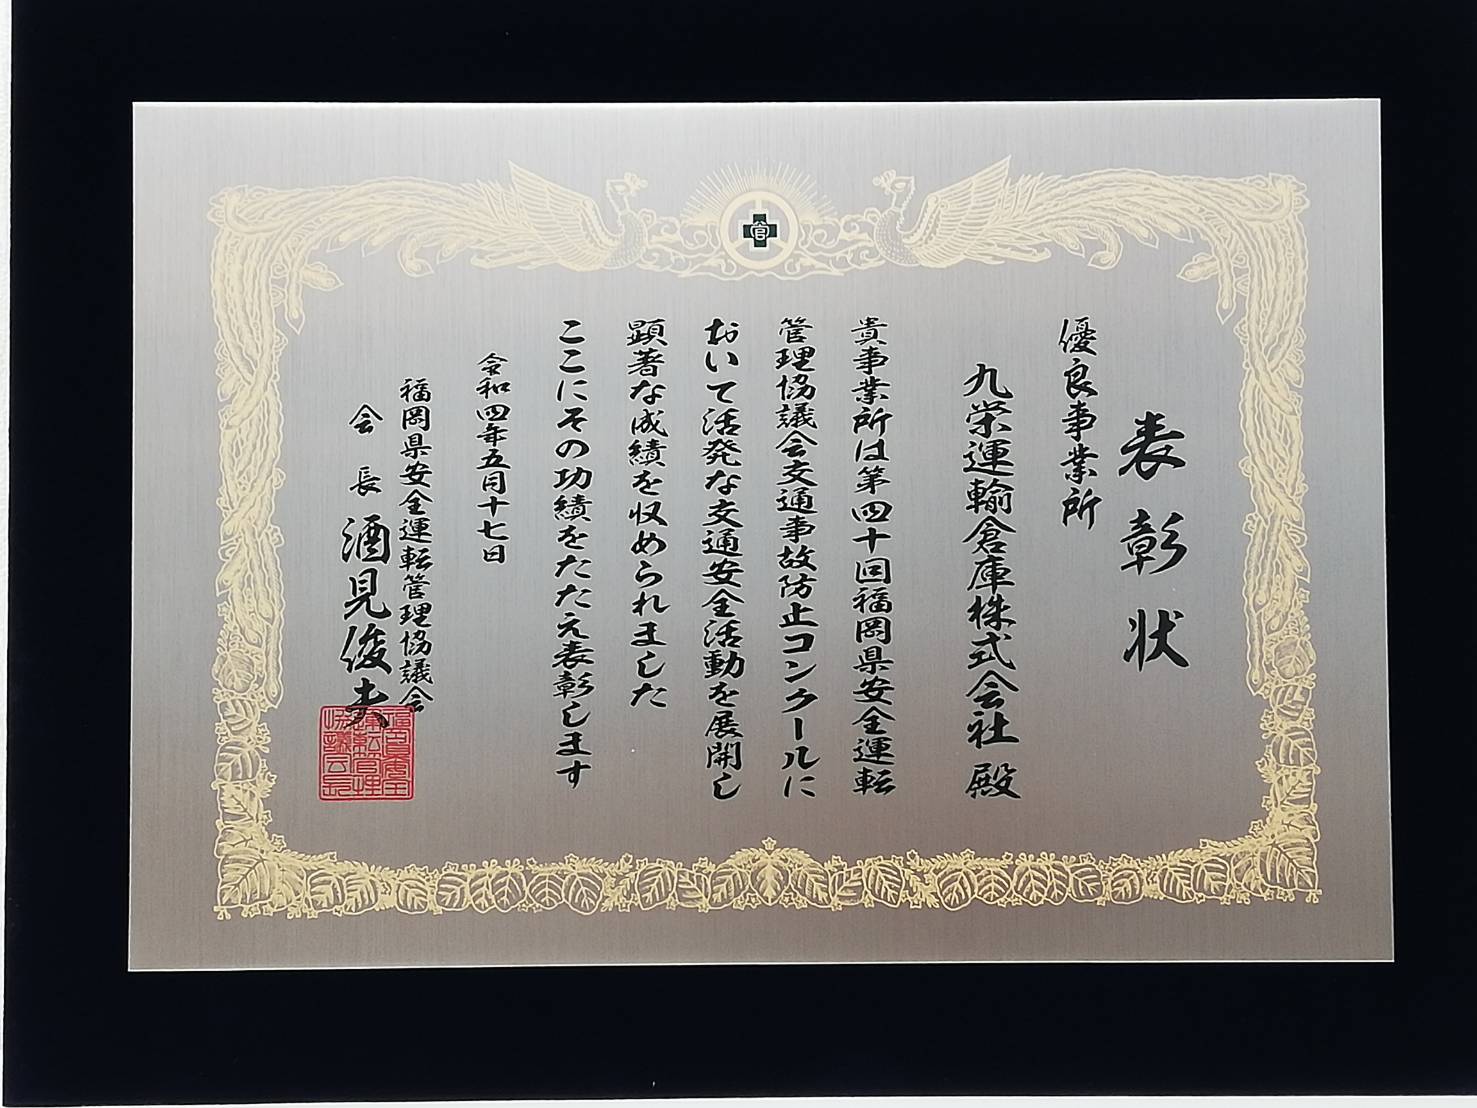 表彰状
優良事業所
九栄運輸倉庫株式会社 殿
貴事業所は第四十回福岡県安全運転
管理協議会交通事故防止コンクールに
おいて活発な交通安全活動を展開し
顕著な成績を収められました
ここにその功績をたたえ表彰します
令和四年五月十七日
福岡県安全運転管理協議会
会長 酒見俊夫